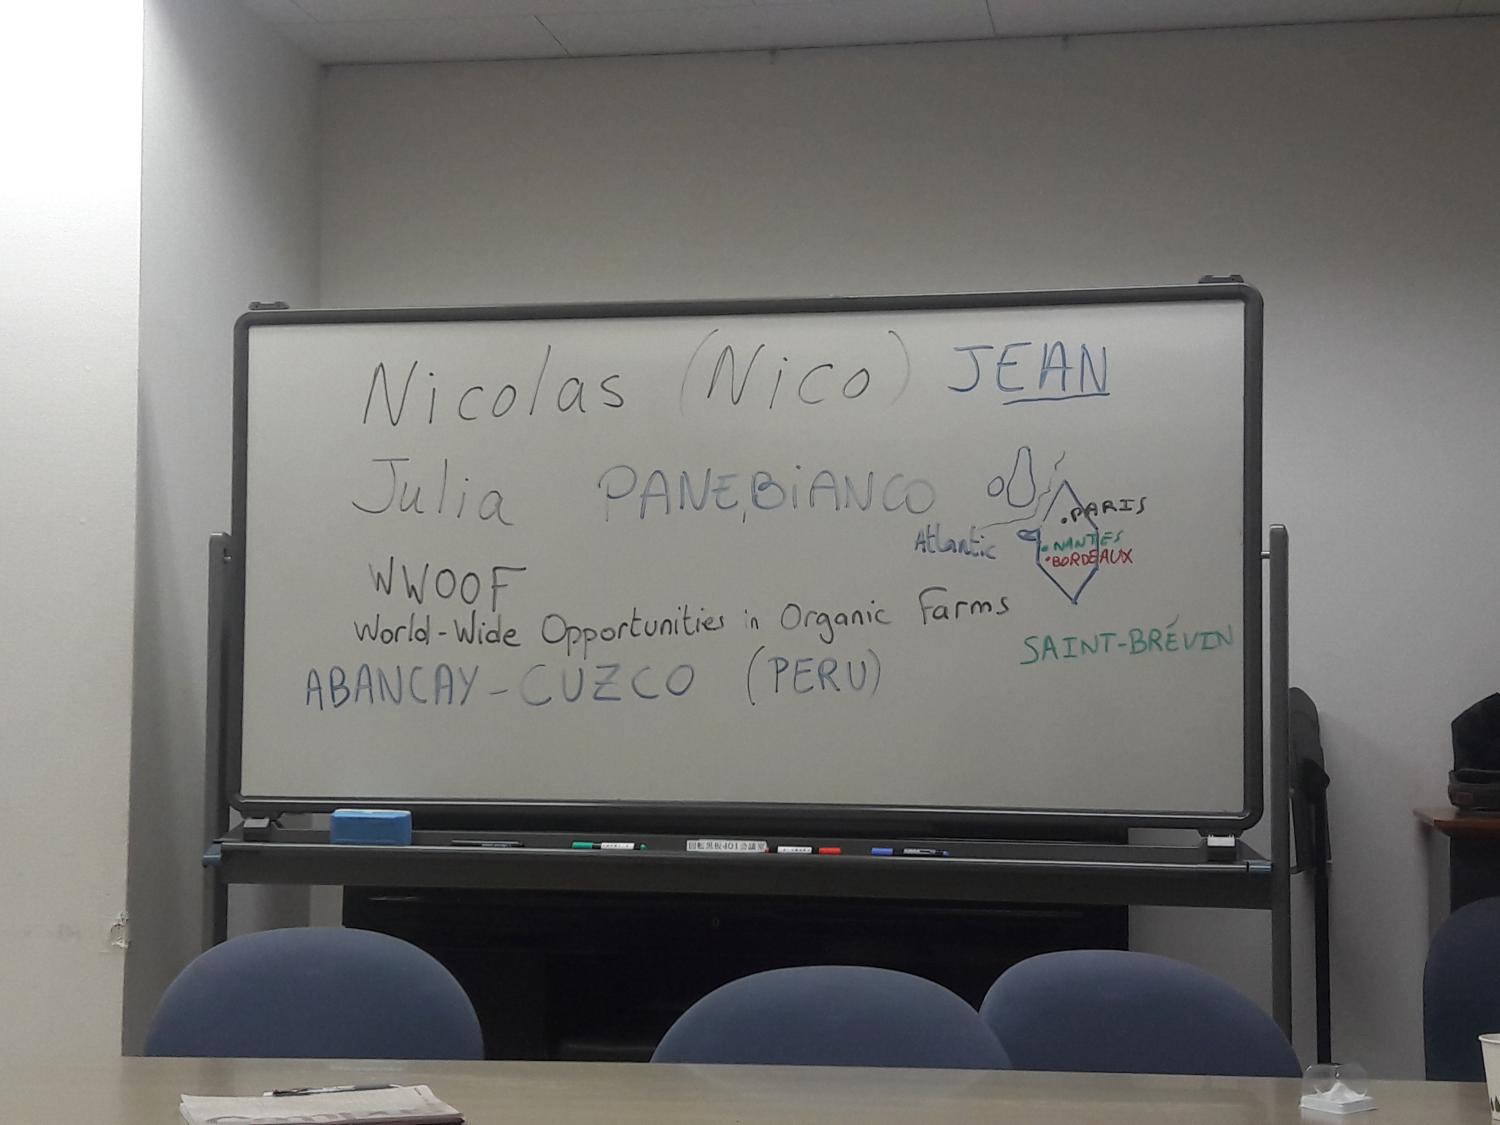 Nicolas (Nico) JEAN
Julia PANEBiANCO
Atlantic
PARIS
NANTES
BORDEAUX
WWOOF
World-Wide Opportunities in Organic Farms
SAINT-BRÉVIN
ABANCAY-CUZCO (PERU)
回転黒板401会議室